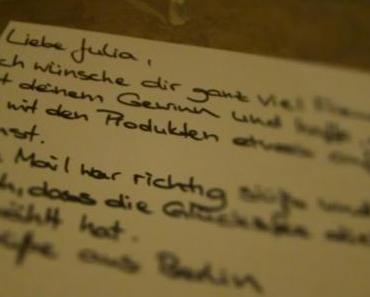 Liebe Julia,
ch wünsche dir ganz viel
t deinem Gewinn und hoffe
mit den Produkten etwas
nst.
Mail war richtig süß und
h, dass die Glücksfee
ählt hat.
üße aus Berlin